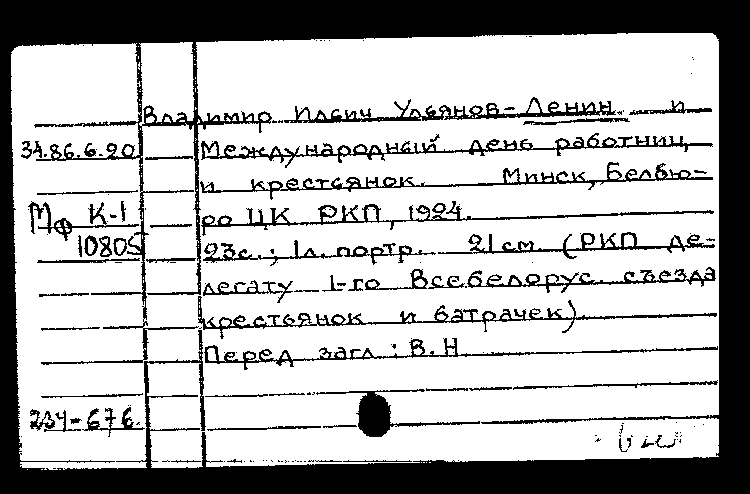 Владимир Ильич Ульянов-Ленин и
34.86.6.20 Международный день работниц
и крестьянок. Минск, Белбю-
Мф К-1 ро ЦК РКП, 1924.
10805 23с.; 1л. портр. 21см (РКП де-
легату 1-го Всебелорус. съезда
крестьянок и батрачек)
Перед загл: В.Н
234-676.